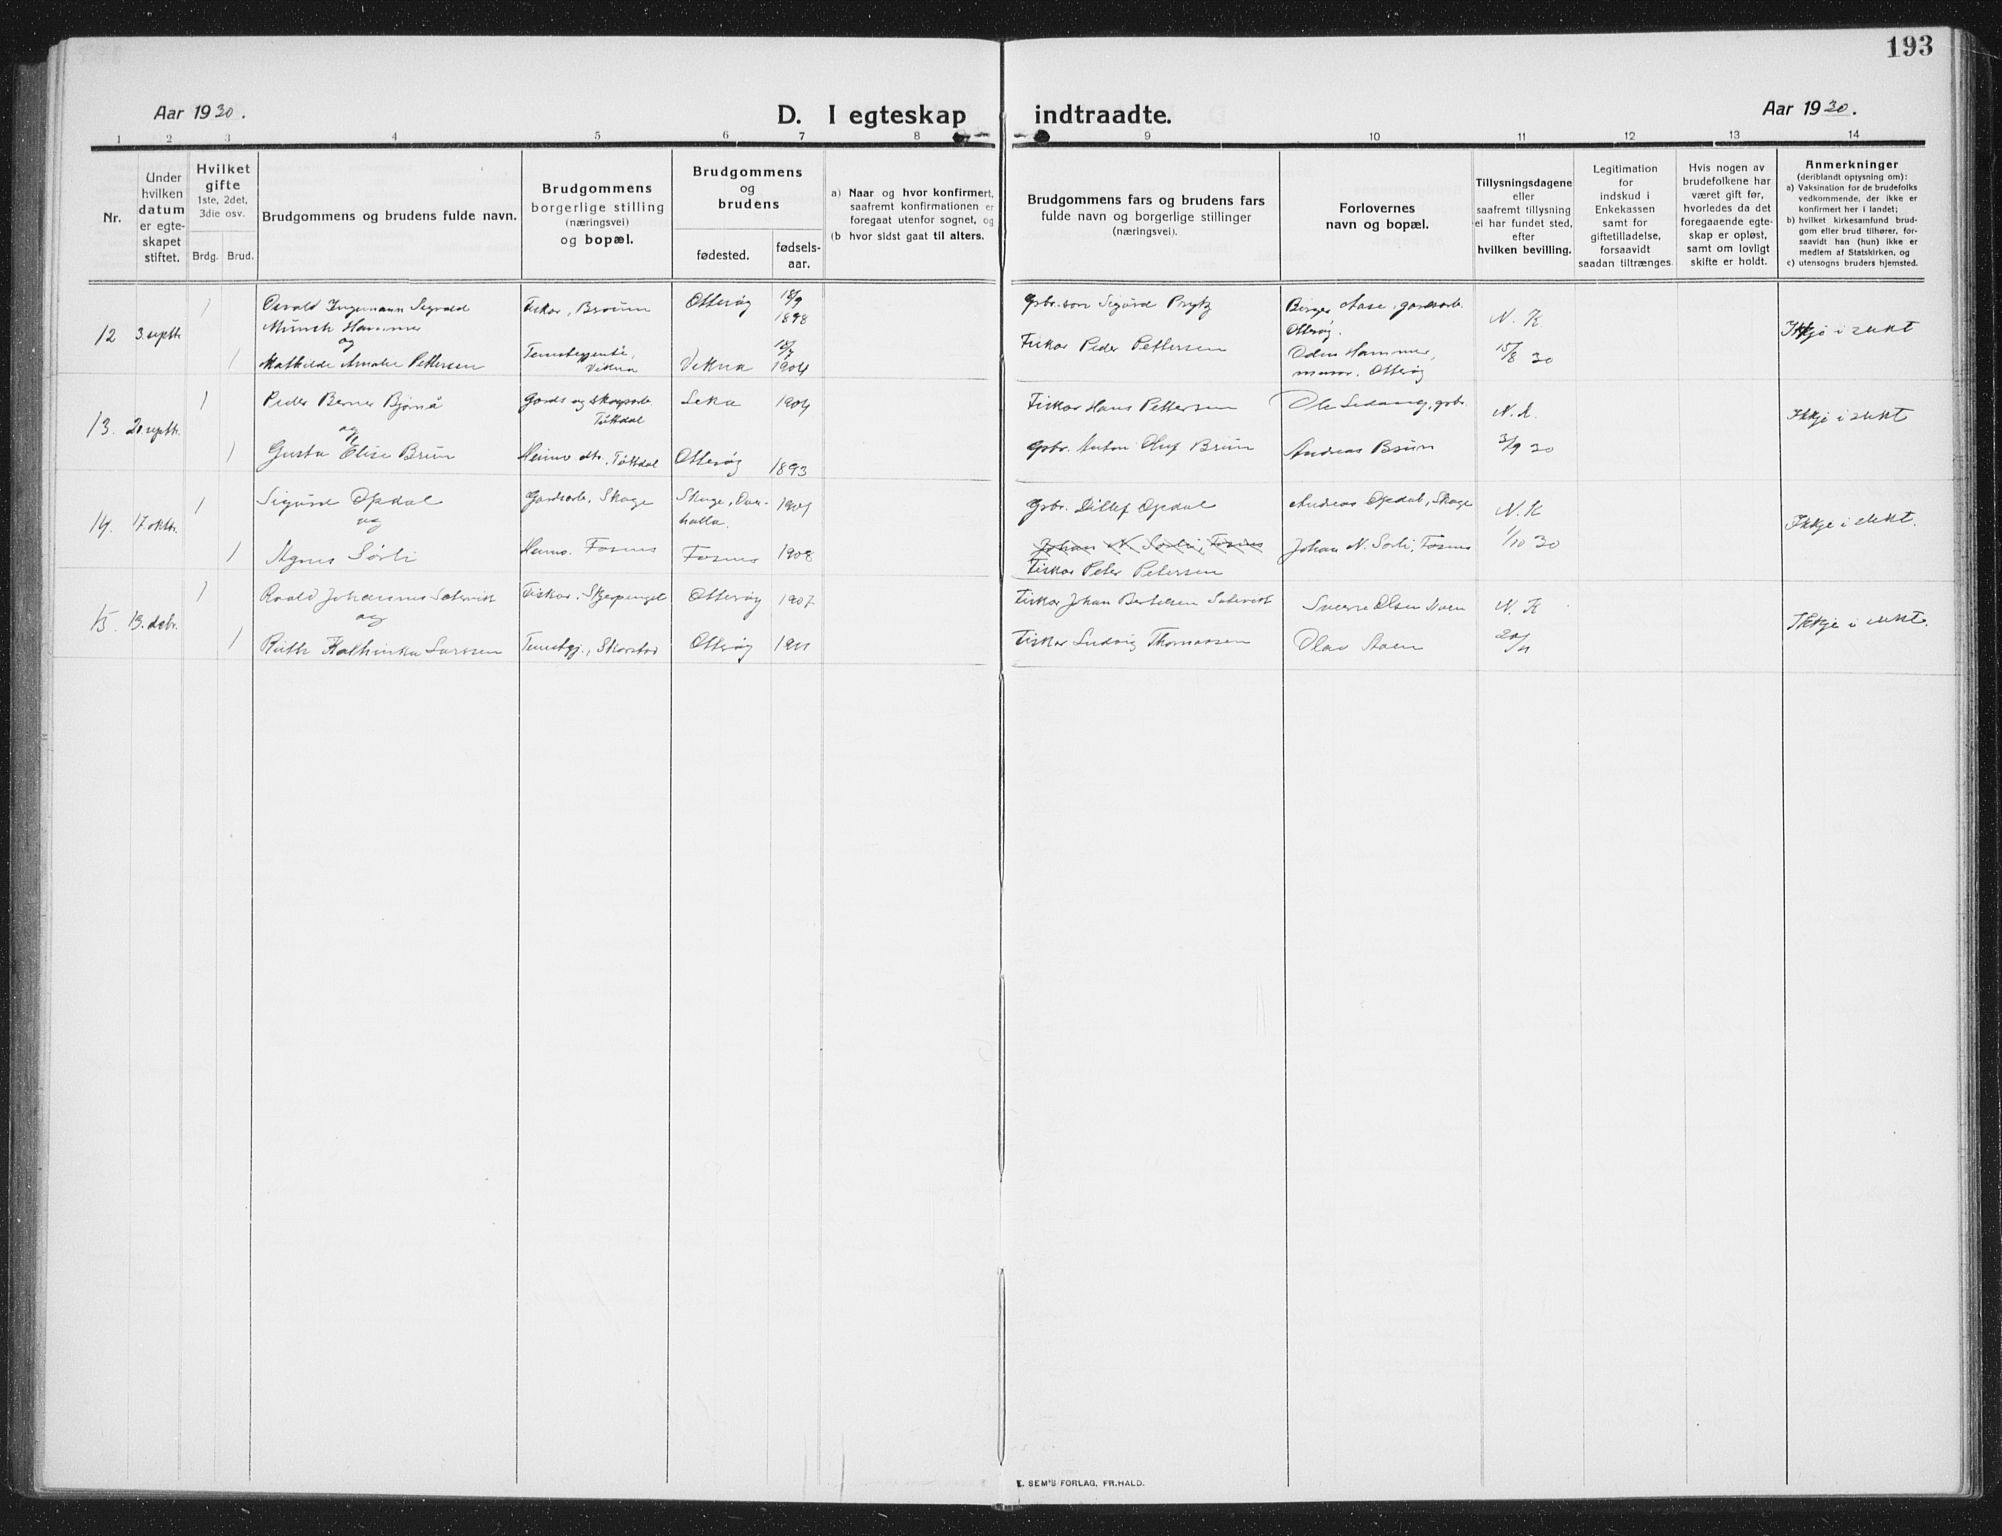 193
Aar 1930.
D. I egteskap indtraadte.
Aar 1930.
1 2 3 4 5 6 7 8 9 10 11 12 13 14
Nr.
Under hvilken datum er egte-skapet stiftet.
Hvilket gifte
1ste, 2det, 3die osv.
Brdg. Brud.
Brudgommens og brudens fulde navn.
Brudgommens borgerlige stilling (næringsvei) og bopæl.
Brudgommens og brudens
fødested.
fødsels-aar.
a) Naar og hvor konfirmert, saafremt konfirmationen er foregaat utenfor sognet, og
(b hvor sidst gaat til alters.
Brudgommens fars og brudens fars
fulde navn og borgerlige stillinger
(næringsvei).
Forlovernes
navn og bopæl.
Tillysningsdagene
eller
saafremt tillysning
ei har fundet sted,
efter
hvilken bevilling.
Legitimation
for
indskud i
Enkekassen
samt for
giftetilladelse,
forsaavidt
saadan tiltrænges.
Hvis nogen av
brudefolkene har
været gift før,
hvorledes da det
foregaaende egte-
skap er opløst,
samt om lovligt
skifte er holdt.
Anmerkninger
(deriblandt oplysning om):
a) Vaksination for de brudefolks
vedkommende, der ikke er
konfirmert her i landet;
b) hvilket kirkesamfund brud-
gom eller brud tilhører, for-
saavidt han (hun) ikke er
medlem af Statskirken, og
c) utensogns bruders hjemsted.
12 3. septbr. 1 Osvald Ingemann Sigvald
Münch Hammer
og
Fiskar, Otterøy 18/9 1898
Gbr. son Sigurd Prytz
Birger Aase, gardsarb. Otterøy.
N. K. 15/8 30
Ikkje i slekt
1 Mathilde Amalie Pettersen
Tenestegjente, Vikna
Vikna 1904
Fiskar Peder Pettersen
Odin Hammer, Otterøy
13. septbr. 1 Peder Berner Bjørnå
og
Gards og skogsarb. Leka 1904
Fiskar Hans Pettersen
Ole gbr.
N. K. 3/9 30
Ikkje i slekt
1 Gusta Elise Brun
Heime Otterøy 1893
Gbr. Anton Oluf Brun
Andreas Brun
14. 17. oktbr. 1 Sigurd Opdal
og
Gardsarb, Skage
Skage, Over-halla. 1904
Gbr. Ditlef Opdal
Andreas Opdal, Skage
N. K 1/10 30
Ikkje i slekt.
1 Agnes Sørli
Heime. Fosnes
Fosnes 1908
Johan N. Sørli, Fosnes
Johan N. Sørli, Fosnes
Fiskar Peter Petersen
15. 13. debr. 1 Roald Johannes Sætervik
og
Fiskar, Otterøy 1907
Fiskar Johan Bertelsen Sætervik
Sverre Olsen
N. K 20/11
Ikkje i slekt.
1 Ruth Kathinka Larssen
Tenestgj., Skorstad
Otterøy 1911
Fiskar Ludvig Thomassen
Olav
E. SEM'S FORLAG. FR.HALD.